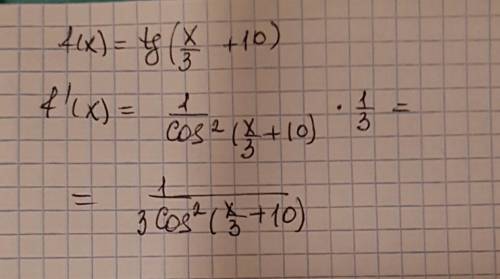 f(x) = tg(x/3 + 10)
f'(x) = 1/cos²(x/3 + 10) · 1/3 =
= 1/3cos²(x/3 + 10)